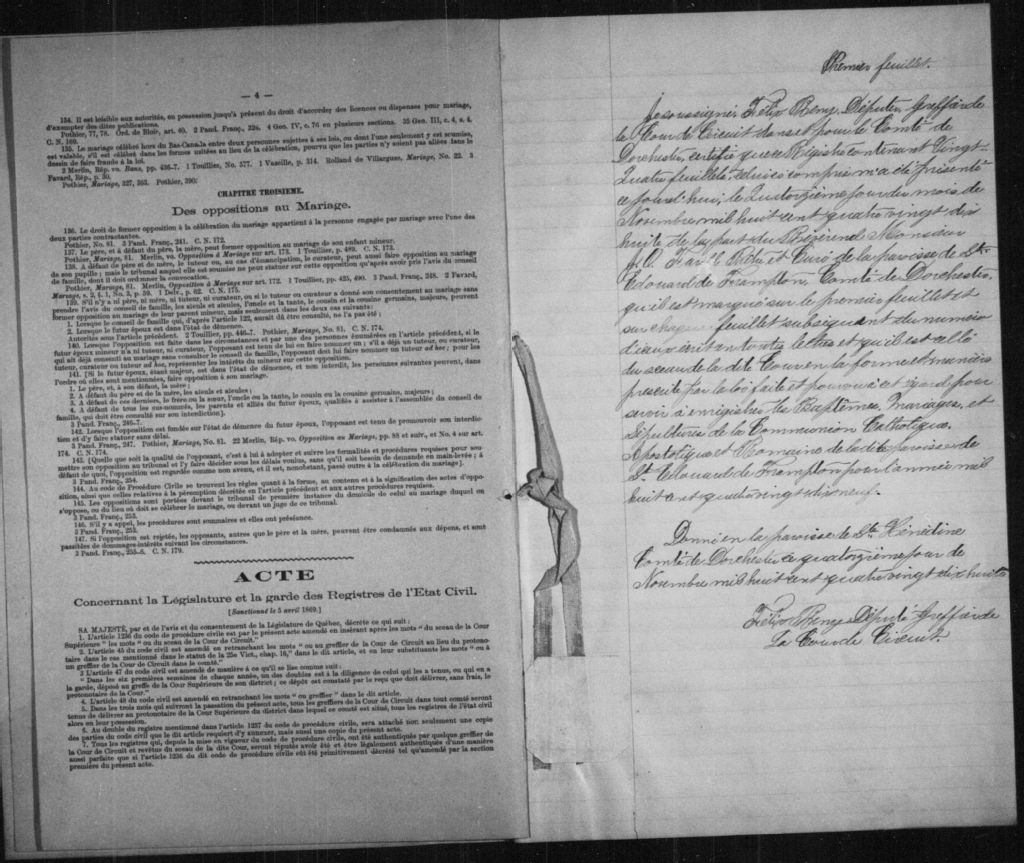 — 4 —
134. Il est loisible aux autorités, en possession jusqu'à présent du droit d'accorder des licences ou dispenses pour mariage,
d'exempter des dites publications.
Pothier, 77, 78. Ord. de Blois, art. 40. 2 Pand. Franç., 324. 4 Geo. IV, c. 76 en plusieurs sections. 35 Geo. III, c. 4, s. 4.
C. N. 169.
135. Le mariage célébré hors du Bas-Canada entre deux personnes sujettes à ses lois, ou dont l'une seulement y est soumise,
est valable, s'il est célébré dans les formes usitées au lieu de la célébration, pourvu que les parties n'y soient pas allées dans le
dessein de faire fraude à la loi.
2 Merlin, Rép. vo. Bans, pp. 436-7. 1 Touillier, No. 577. 1 Vazeille, p. 314. Rolland de Villargue, Mariage, No. 22. 3
Favard, Rép., p. 30.
Pothier, Mariage, 327, 363. Pothier, 390.
CHAPITRE TROISIEME.
Des oppositions au Mariage.
136. Le droit de former opposition à la célébration du mariage appartient à la personne engagée par mariage avec l'une des
deux parties contractantes.
Pothier, No. 81. 3 Pand. Franç., 241. C. N. 172.
137. Le père, et à défaut du père, la mère, peut former opposition au mariage de son enfant mineur.
Pothier, Mariage, 81. Merlin, vo. Opposition à Mariage sur art. 173. 1 Touillier, p. 489. C. N. 173.
138. A défaut de père et de mère, le tuteur ou, au cas d'émancipation, le curateur, peut aussi faire opposition au mariage
de son pupille; mais le tribunal auquel elle est soumise ne peut statuer sur cette opposition qu'après avoir pris l'avis du conseil
de famille, dont il doit ordonner la convocation.
Pothier, Mariage, 81. Merlin, Opposition à Mariage sur art. 172. 1 Touillier, pp. 425, 490. 3 Pand. Franç., 248. 2 Favard,
Mariage, s. 2, § 1, No. 3, p. 59. 1 Delv., p. 62. C. N. 175.
139. S'il n'y a ni père, ni mère, ni tuteur, ni curateur, ou si le tuteur ou curateur a donné son consentement au mariage sans
prendre l'avis du conseil de famille, les aïeuls et aïeules, l'oncle et la tante, le cousin et la cousine germains, majeurs, peuvent
former opposition au mariage de leur parent mineur, mais seulement dans les deux cas suivants:
1. Lorsque le conseil de famille qui, d'après l'article 122, aurait dû être consulté, ne l'a pas été;
2. Lorsque le futur époux est dans l'état de démence.
Autorités sous l'article précédent. 2 Touillier, pp. 446-7. Pothier, Mariage, No. 81. C. N. 174.
140. Lorsque l'opposition est faite dans les circonstances et par une des personnes énumérées en l'article précédent, si le
futur époux mineur n'a ni tuteur, ni curateur, l'opposant est tenu de lui en faire nommer un; s'il a déjà un tuteur, ou curateur,
qui ait déjà consenti au mariage sans consulter le conseil de famille, l'opposant doit lui faire nommer un tuteur ad hoc; pour les
tuteur, curateur ou tuteur ad hoc, représenter les intérêts du mineur sur cette opposition.
141. [Si le futur époux, étant majeur, est dans l'état de démence, et non interdit, les personnes suivantes peuvent, dans
l'ordre où elles sont mentionnées, faire opposition à son mariage.
1. Le père et, à son défaut, la mère;
2. A défaut du père et de la mère, les aïeuls et aïeules;
3. A défaut de ces derniers, le frère ou la sœur, l'oncle ou la tante, le cousin ou la cousine germains, majeurs;
4. A défaut de tous les sus-nommés, les parents et alliés du futur époux, qualifiés à assister à l'assemblée du conseil de
famille, qui doit être consulté sur son interdiction].
3 Pand. Franç., 246-7.
142. Lorsque l'opposition est fondée sur l'état de démence du futur époux, l'opposant est tenu de promouvoir son interdic-
tion et d'y faire statuer sans délai.
3 Pand. Franç., 247. Pothier, Mariage, No. 81. 22 Merlin, Rép. vo. Opposition au Mariage, pp. 88 et suiv., et No. 4 sur art.
174. C. N. 174.
143. [Quelle que soit la qualité de l'opposant, c'est à lui à adopter et suivre les formalités et procédures requises pour sou-
mettre son opposition au tribunal et l'y faire décider sous les délais voulus, sans qu'il soit besoin de demande en main-levée; à
défaut de quoi, l'opposition est regardée comme non avenu, et il est, nonobstant, passé outre à la célébration du mariage].
3 Pand. Franç., 254.
144. Au Code de Procédure Civile se trouvent les règles quant à la forme, au contenu et à la signification des actes d'oppo-
sition, ainsi que celles relatives à la péremption décrétée en l'article précédent et aux autres procédures requises.
145. Les oppositions sont portées devant le tribunal de première instance du domicile de celui au mariage duquel on
s'oppose, ou du lieu où doit se célébrer le mariage, ou devant un juge de ce tribunal.
3 Pand. Franç., 253.
146. S'il y a appel, les procédures sont sommaires et elles ont préséance.
3 Pand. Franç., 253.
147. Si l'opposition est rejetée, les opposants, autres que le père et la mère, peuvent être condamnés aux dépens, et sont
passibles de dommages-intérêts suivant les circonstances.
3 Pand. Franç., 255-6. C. N. 179.
ACTE
Concernant la Législature et la garde des Registres de l'Etat Civil.
[Sanctionné le 5 avril 1869.]
SA MAJESTÉ, par et de l'avis et du consentement de la Législature de Québec, décrète ce qui suit:
1. L'article 1236 du code de procédure civile est par le présent acte amendé en insérant après les mots "du sceau de la Cour
Supérieure" les mots "ou du sceau de la Cour de Circuit."
2. L'article 45 du code civil est amendé en retranchant les mots "ou au greffier de la Cour de Circuit au lieu du protono-
taire dans le cas mentionné dans le statut de la 25e Vict., chap. 16," dans le dit article, et en leur substituant les mots "ou à
un greffier de la Cour de Circuit dans le comté."
3 L'article 47 du code civil est amendé de manière à ce qu'il se lise comme suit:
"Dans les six premières semaines de chaque année, un des doubles est à la diligence de celui qui les a tenus, ou qui en a
la garde, déposé au greffe de la Cour Supérieure de son district; ce dépôt est constaté par le reçu que doit délivrer, sans frais, le
protonotaire de la Cour."
4. L'article 48 du code civil est amendé en retranchant les mots "ou greffier" dans le dit article.
5. Dans les trois mois qui suivront la passation du présent acte, tous les greffiers de la Cour de Circuit dans tout comté seront
tenus de délivrer au protonotaire de la Cour Supérieure du district dans lequel ce comté est situé, tous les registres de l'état civil
alors en leur possession.
6. Au double du registre mentionné dans l'article 1237 du code de procédure civile, sera attaché non seulement une copie
des parties du code civil que le dit article requiert d'y annexer, mais aussi une copie du présent acte.
7. Tous les registres qui, depuis la mise en vigueur du code de procédure civile, ont été authentiqués par quelque greffier de
la Cour de Circuit et revêtus du sceau de la dite Cour, seront réputés avoir été et être légalement authentiqués d'une manière
aussi parfaite que si l'article 1236 du dit code de procédure civile eût été primitivement décrété tel qu'amendé par la section
première du présent acte.
Premier feuillet.
Je soussigné Félix Remy Député Greffier de
la Cour de Circuit dans et pour le Comté de
Dorchester, certifie que ce Régistre contenant Vingt-
Quatre feuillets, celui ci compris m'a été présenté
ce jourd'hui, le Quatorzième jour du mois de
Novembre mil huit cent quatre vingt dix
huit de la part du Révérend Monsieur
Ptre et Curé de la paroisse de St
Edouard de Frampton, Comté de Dorchester,
qu'il est marqué sur le premier feuillet et
sur chaque feuillet subséquent du numéro
d'iceux écrit en toutes lettres et qu'il est
du sceau de la dite Cour en la forme et manière
prescrite par la loi faite et pourvue à cet égard pour
servir à enrégistrer les Baptêmes, Mariages, et
Sépultures de la Communion Catholique,
Apostolique et Romaine de la dite paroisse de
St. Edouard de Frampton pour l'année mil
huit cent quatre vingt dix neuf.
Donné en la paroisse de Ste Hénédine
Comté de Dorchester ce quatorzième jour de
Novembre mil huit cent quatre vingt dix huit
Félix Remy Député Greffier de
La Cour de Circuit